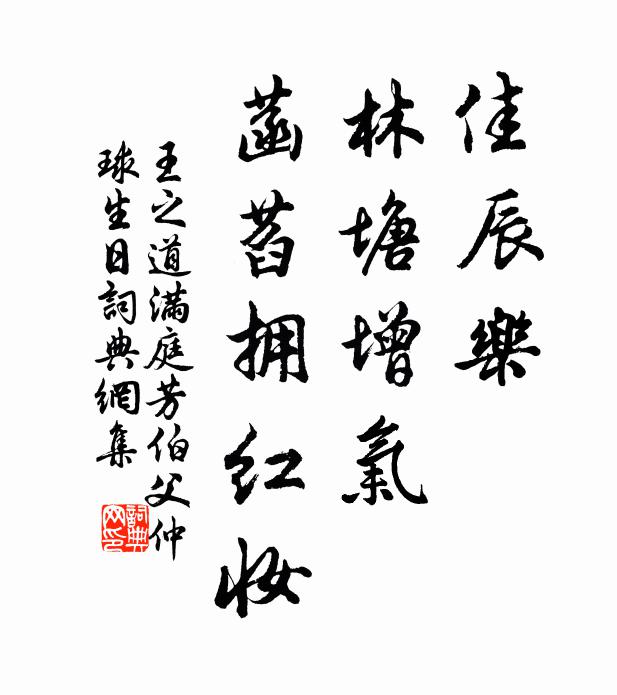 佳辰樂
林塘增氣
菡萏拥红妆
王之道滿庭芳伯父仲
球生日詞典網集
詞典
网印